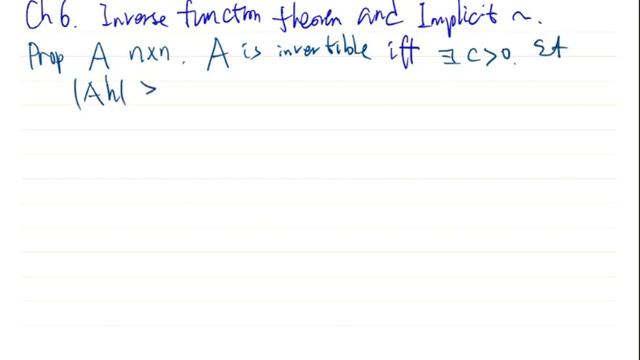 Ch 6. Inverse function theorem and Implicit ~.
Prop A n×n. A is invertible iff ∃ c>0. st
|Ah| >